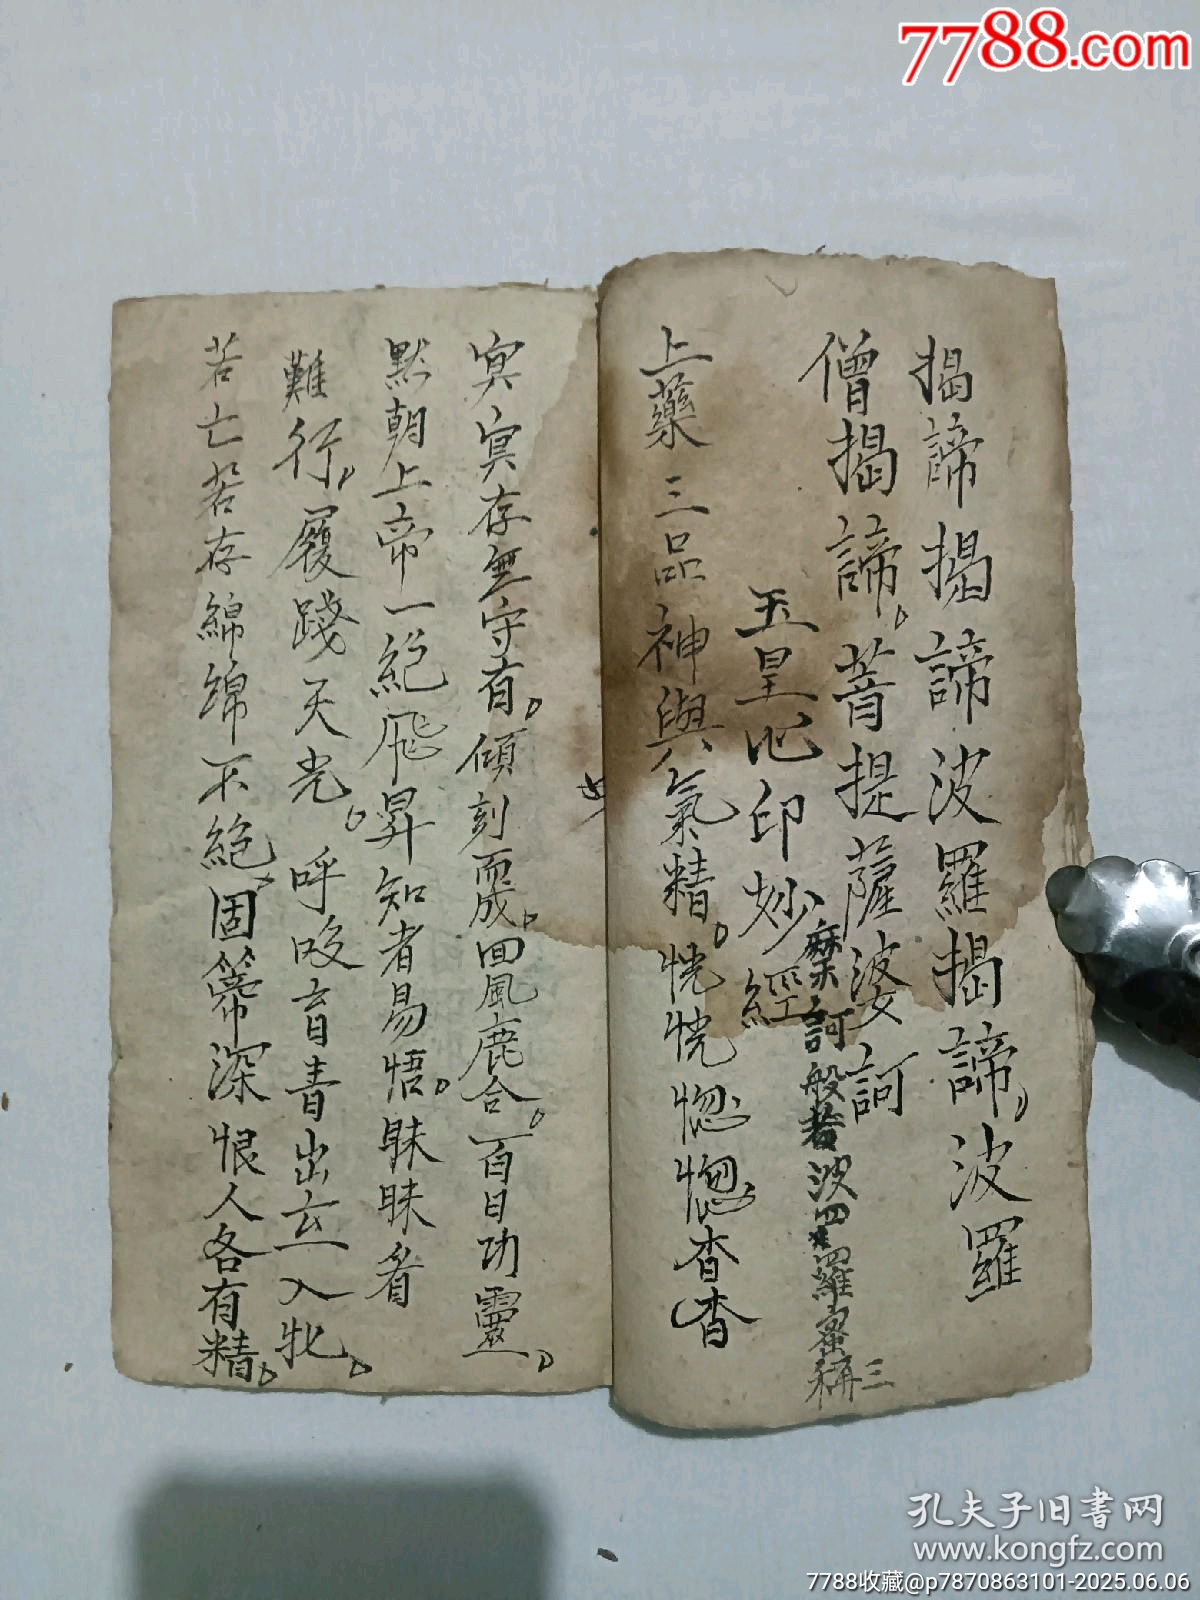 7788.com
揭諦揭諦波羅揭諦波羅
僧揭諦菩提薩婆訶
摩訶般若波羅蜜 三稱
玉皇心印妙經
上藥三品神與氣精恍恍惚惚杳杳
冥冥存無守有傾刻而成回風鹿合百日功靈
默朝上帝一紀飛昇知者易悟昧昧者
難行履踐天光呼吸育青出玄入牝
若亡若存綿綿不絕固蒂深恨人各有精
孔夫子旧书网
www.kongfz.com
7788收藏@p7870863101-2025.06.06